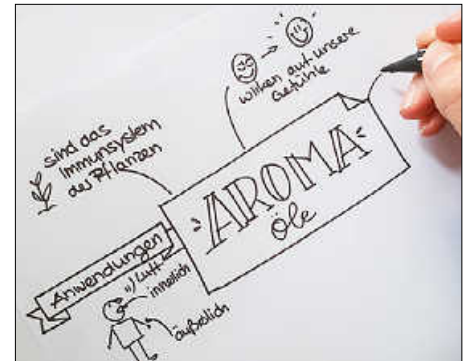 wirken auf unsere
Gefühle
sind das
Immunsystem
der Pflanzen
AROMA
öle
Anwendungen
Luft
innerlich
äußerlich